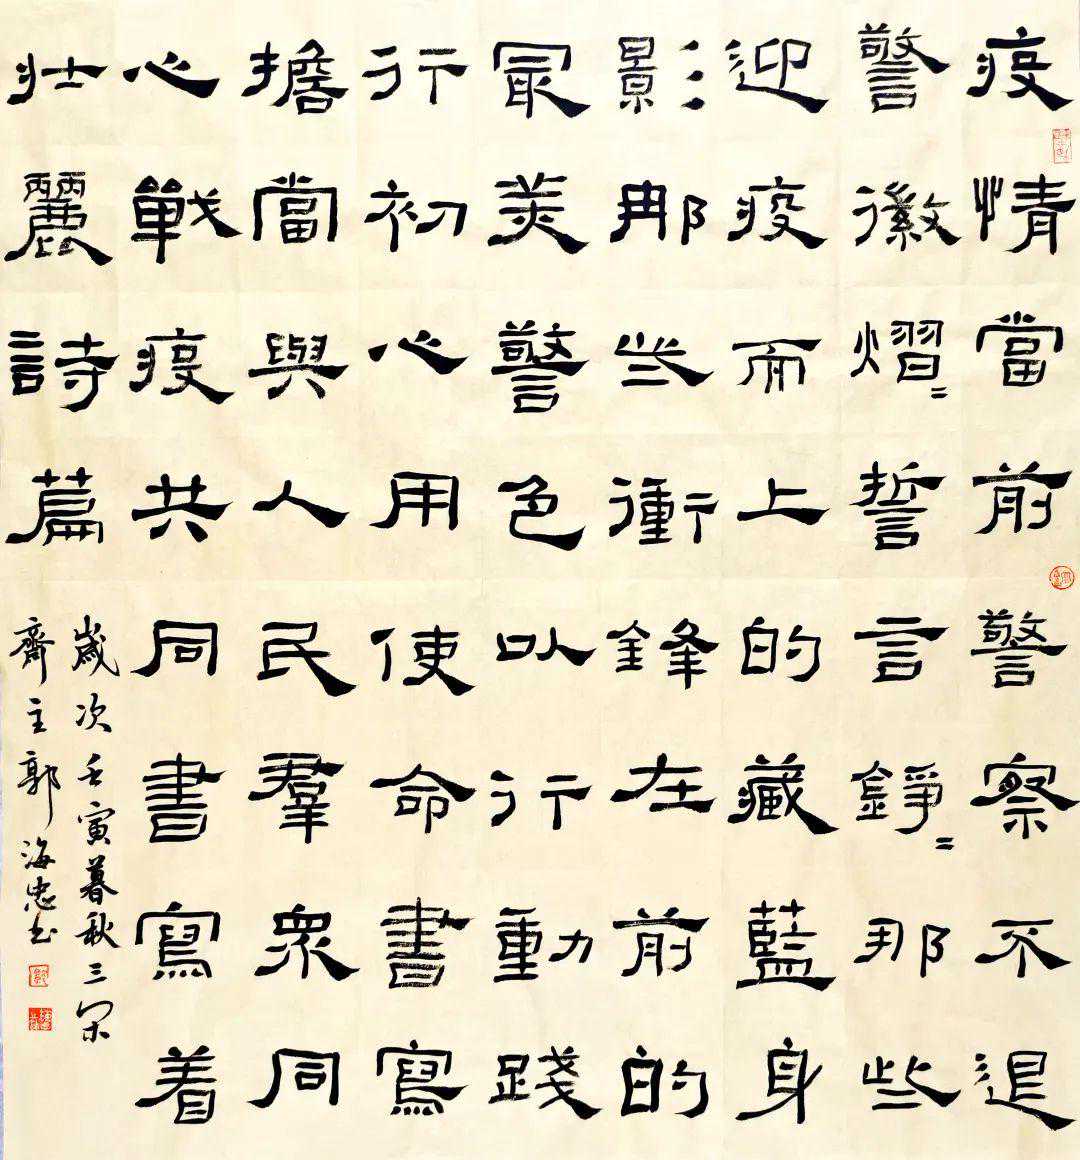 疫情當前警察不退
警徽熠〻誓言錚〻那些
迎疫而上的藏藍身
影那些衝鋒在前的
最美警色以行動踐
行初心用使命書寫
擔當與人民羣眾同
心戰疫共同書寫着
壯麗詩篇
歲次壬寅暮秋三宋
齋主郭海忠书